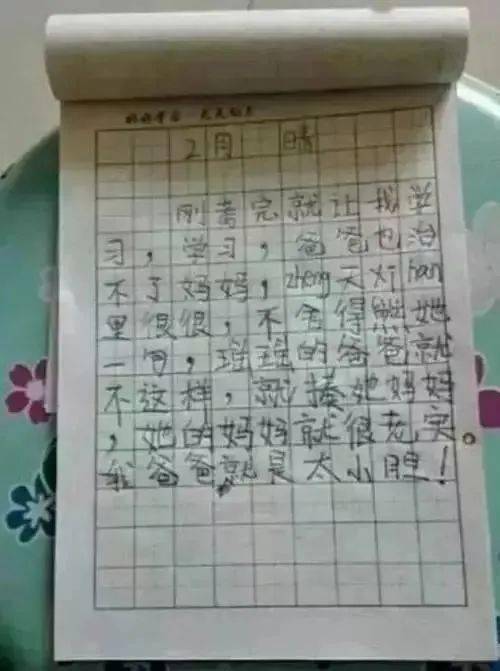 好好学习 天天向上
2月 晴
刚考完就让我学
习,学习,爸爸也治
不了妈妈,zheng天对han
里很很,不舍得熊她
一句,瑶瑶的爸爸就
不这样,就揍她妈妈
,她的妈妈就很老实
我爸爸就是太小胆!